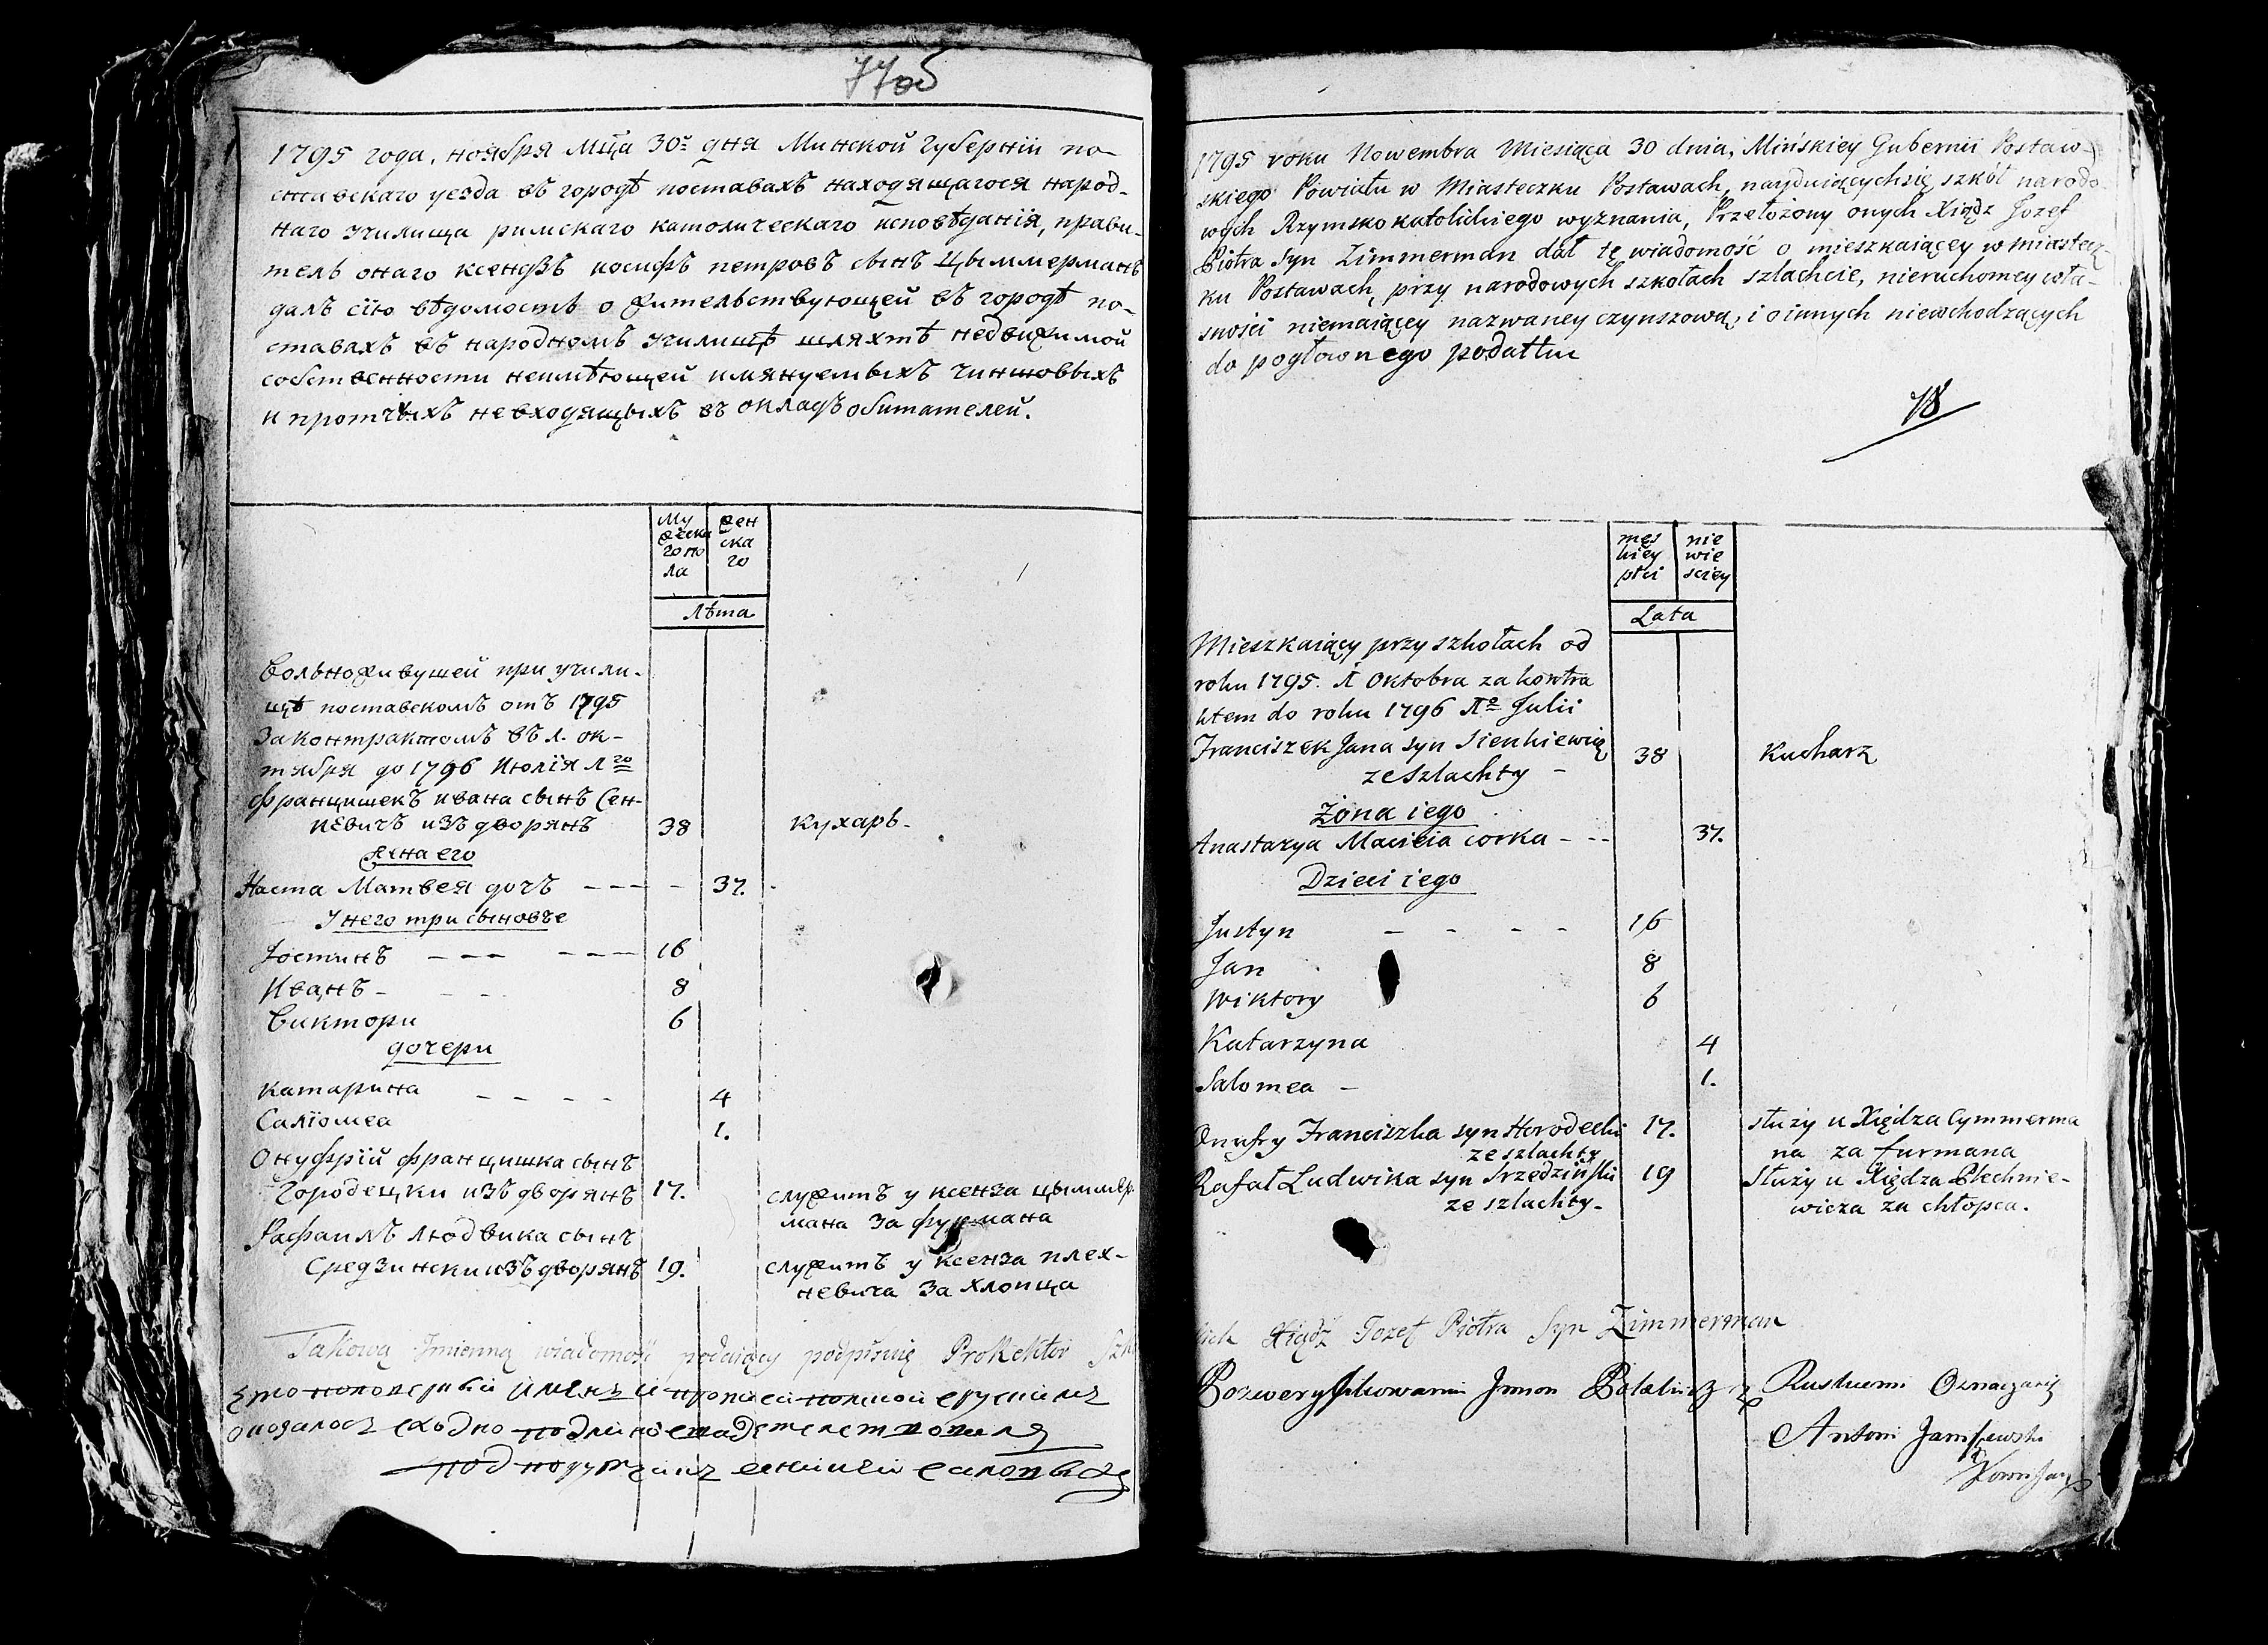 77об
1795 года, ноября Мца 30го дня Минской Губернiи по-
ставскаго уезда въ городѣ поставахъ находящагося народ-
наго училища римскаго католическаго исповѣданiя, прави-
тель онаго ксендзъ иосифъ петровъ сынъ Цыммерманъ
далъ сiю вѣдомость о жительствующей въ городѣ по-
ставахъ въ народномъ училищѣ шляхтѣ недвижимой
собственности неимѣющей имянуемыхъ чиншовыхъ
и протчихъ невходящыхъ въ окладъ обитателей.
му
жеска
го по
ла
жен
ска
го
Лѣта
Вольноживущей при учили-
щѣ поставскомъ отъ 1795
За контрактомъ въ л. ок-
тября до 1796 Июлiя Л го
францишекъ ивана сынъ Сен-
кевичъ изъ дворянъ 38 кухаръ.
жена его
Наста Матвея дочъ - - - - 37.
У него три сыновъе
Юстинъ - - - - - - 16
Иванъ - - - 8
Виктори 6
дочери
катарина - - - - 4
Салiомеа 1.
Онуфрiй францишка сынъ
Городецки изъ дворянъ 17. служитъ у ксенза цыммер
мана За фурмана
Рафаилъ людвика сынъ
Средзински изъ дворянъ 19. служитъ у ксенза плех-
невича За хлопца
Takową Imienną wiadomość podaiący podpisuię Prorektor Szk
1795 roku Nowembra Miesiąca 30 dnia, Mińskiey Gubernii Postaw-
skiego Powiatu w Miasteczku Postawach, nayduiącychsię szkół narodo-
wych Rzymsko katolickiego wyznania, Przełożony onych Xiądz Jozef
Piotra Syn Zimmerman dał tę wiadomość o mieszkaiącey w miastecz-
ku Postawach, przy narodowych szkołach szlachcie, nieruchomey wła-
sności niemaiącey nazwaney czynszową, i o innych niewchodzących
do pogłownego podatku
78
męs
kiey
płci
nie
wie
sciey
Lata
Mieszkaiący przy szkołach od
roku 1795. Л Oktobra za kontra
ktem do roku 1796 Лgo Julii
Franciszek Jana syn Sienkiewicz 38 Kucharz
ze Szlachty -
Żona iego
Anastazya Macieia corka - - - 37.
Dzieci iego
Justyn - - - - 16
Jan 8
Wiktory 6
Katarzyna 4
Salomea - 1.
Onufry Franciszka syn Horodecki 17. słuzy u Xiędza Cymmerma
ze szlachty na za furmana
Rafał Ludwika syn Srzedziński 19 Słuzy u Xiędza Plechnie-
ze szlachty. wicza za chłopca.
Xiądz Jozef Piotra Syn Zimmerman
Antoni